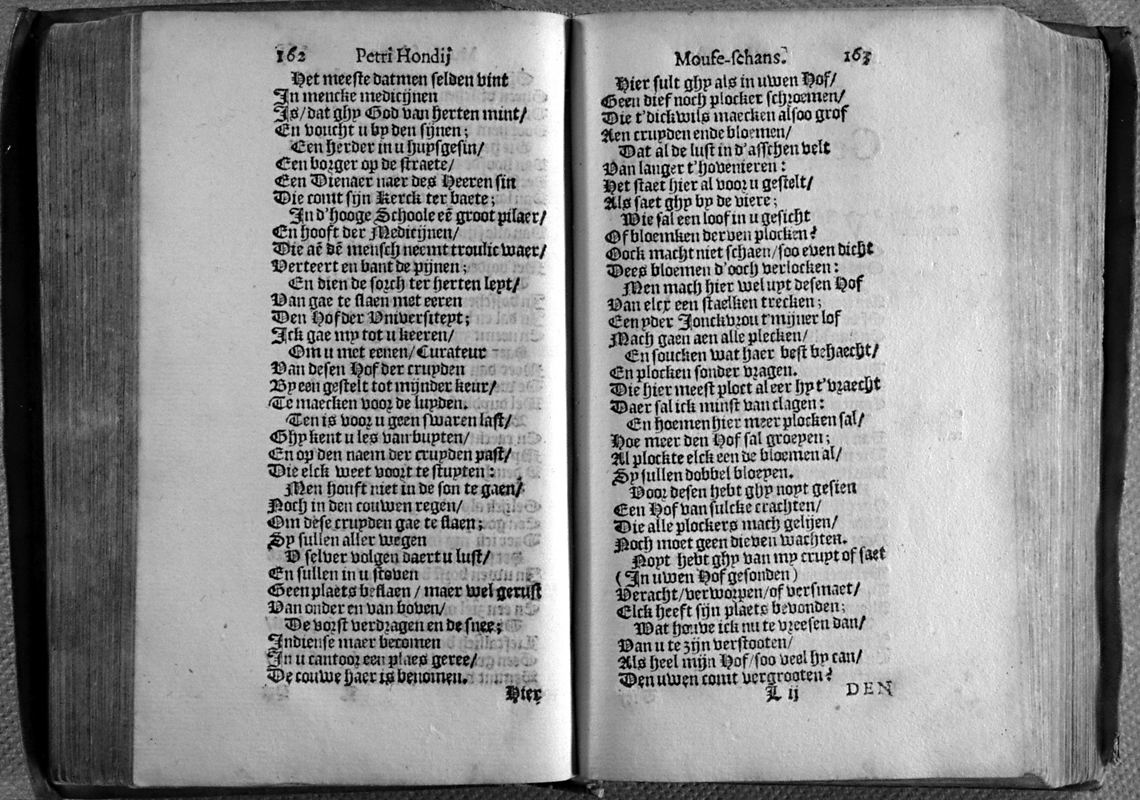 162 Petri Hondij
Het meeste datmen selden vint
In mencke medicijnen
Is/dat ghy God van herten mint/
En voucht u by den sijnen;
Een herder in u huysgesin/
Een borger op de straete/
Een Dienaer naer des Heeren sin
Die comt sijn Kerck ter baete;
In d'hooge Schoole eē groot pilaer/
En hooft der Medicijnen/
Die aē dē mensch neemt troulic waer/
Verteert en bant de pijnen;
En dien de sorch ter herten leyt/
Van gae te slaen met eeren
Den Hof der Universiteyt;
Ick gae my tot u keeren/
Om u met eenen/Curateur
Van desen Hof der cruyden
By een gestelt tot mijnder keur/
Te maecken voor de luyden.
Ten is voor u geen swaren last/
Ghy kent u les van buyten/
En op den naem der cruyden past/
Die elck weet voort te stuyten:
Men houft niet in de son te gaen/
Noch in den couwen regen/
Om dese cruyden gae te slaen;
Sy sullen aller wegen
V selver volgen daert u lust/
En sullen in u stoven
Geen plaets beslaen/ maer wel gerust
Van onder en van boven/
De vorst verdragen en de snee;
Indiense maer becomen
In u cantoor een plaes geree/
De couwe haer is benomen.
Hier
Mouse-schans. 163
Hier sult ghy als in uwen Hof/
Geen dief noch plocker schroemen/
Die t'dickwils maecken alsoo grof
Aen cruyden ende bloemen/
Dat al de lust in d'asschen velt
Van langer t'hovenieren:
Het staet hier al voor u gestelt/
Als saet ghy by de viere;
Wie sal een loof in u gesicht
Of bloemken derven plocken?
Oock macht niet schaen/soo even dicht
Dees bloemen d'ooch verlocken:
Men mach hier wel uyt desen Hof
Van elcx een staelken trecken;
Een yder Jonckvrou t'mijner lof
Mach gaen aen alle plecken/
En soucken wat haer best behaecht/
En plocken sonder vragen.
Die hier meest ploct al eer hy t'vraecht
Daer sal ick minst van clagen:
En hoemen hier meer plocken sal/
Hoe meer den Hof sal groeyen;
Al plockte elck een de bloemen al/
Sy sullen dobbel bloeyen.
Voor desen hebt ghy noyt gesien
Een Hof van sulcke crachten/
Die alle plockers mach gelijen/
Noch moet geen dieven wachten.
Noyt hebt ghy van my cruyt of saet
(In uwen Hof gesonden)
Veracht/verworpen/of versmaet/
Elck heeft sijn plaets bevonden;
Wat houve ick nu te vreesen dan/
Van u te zijn verstooten/
Als heel mijn Hof/soo veel hy can/
Den uwen comt vergrooten?
L ij DEN